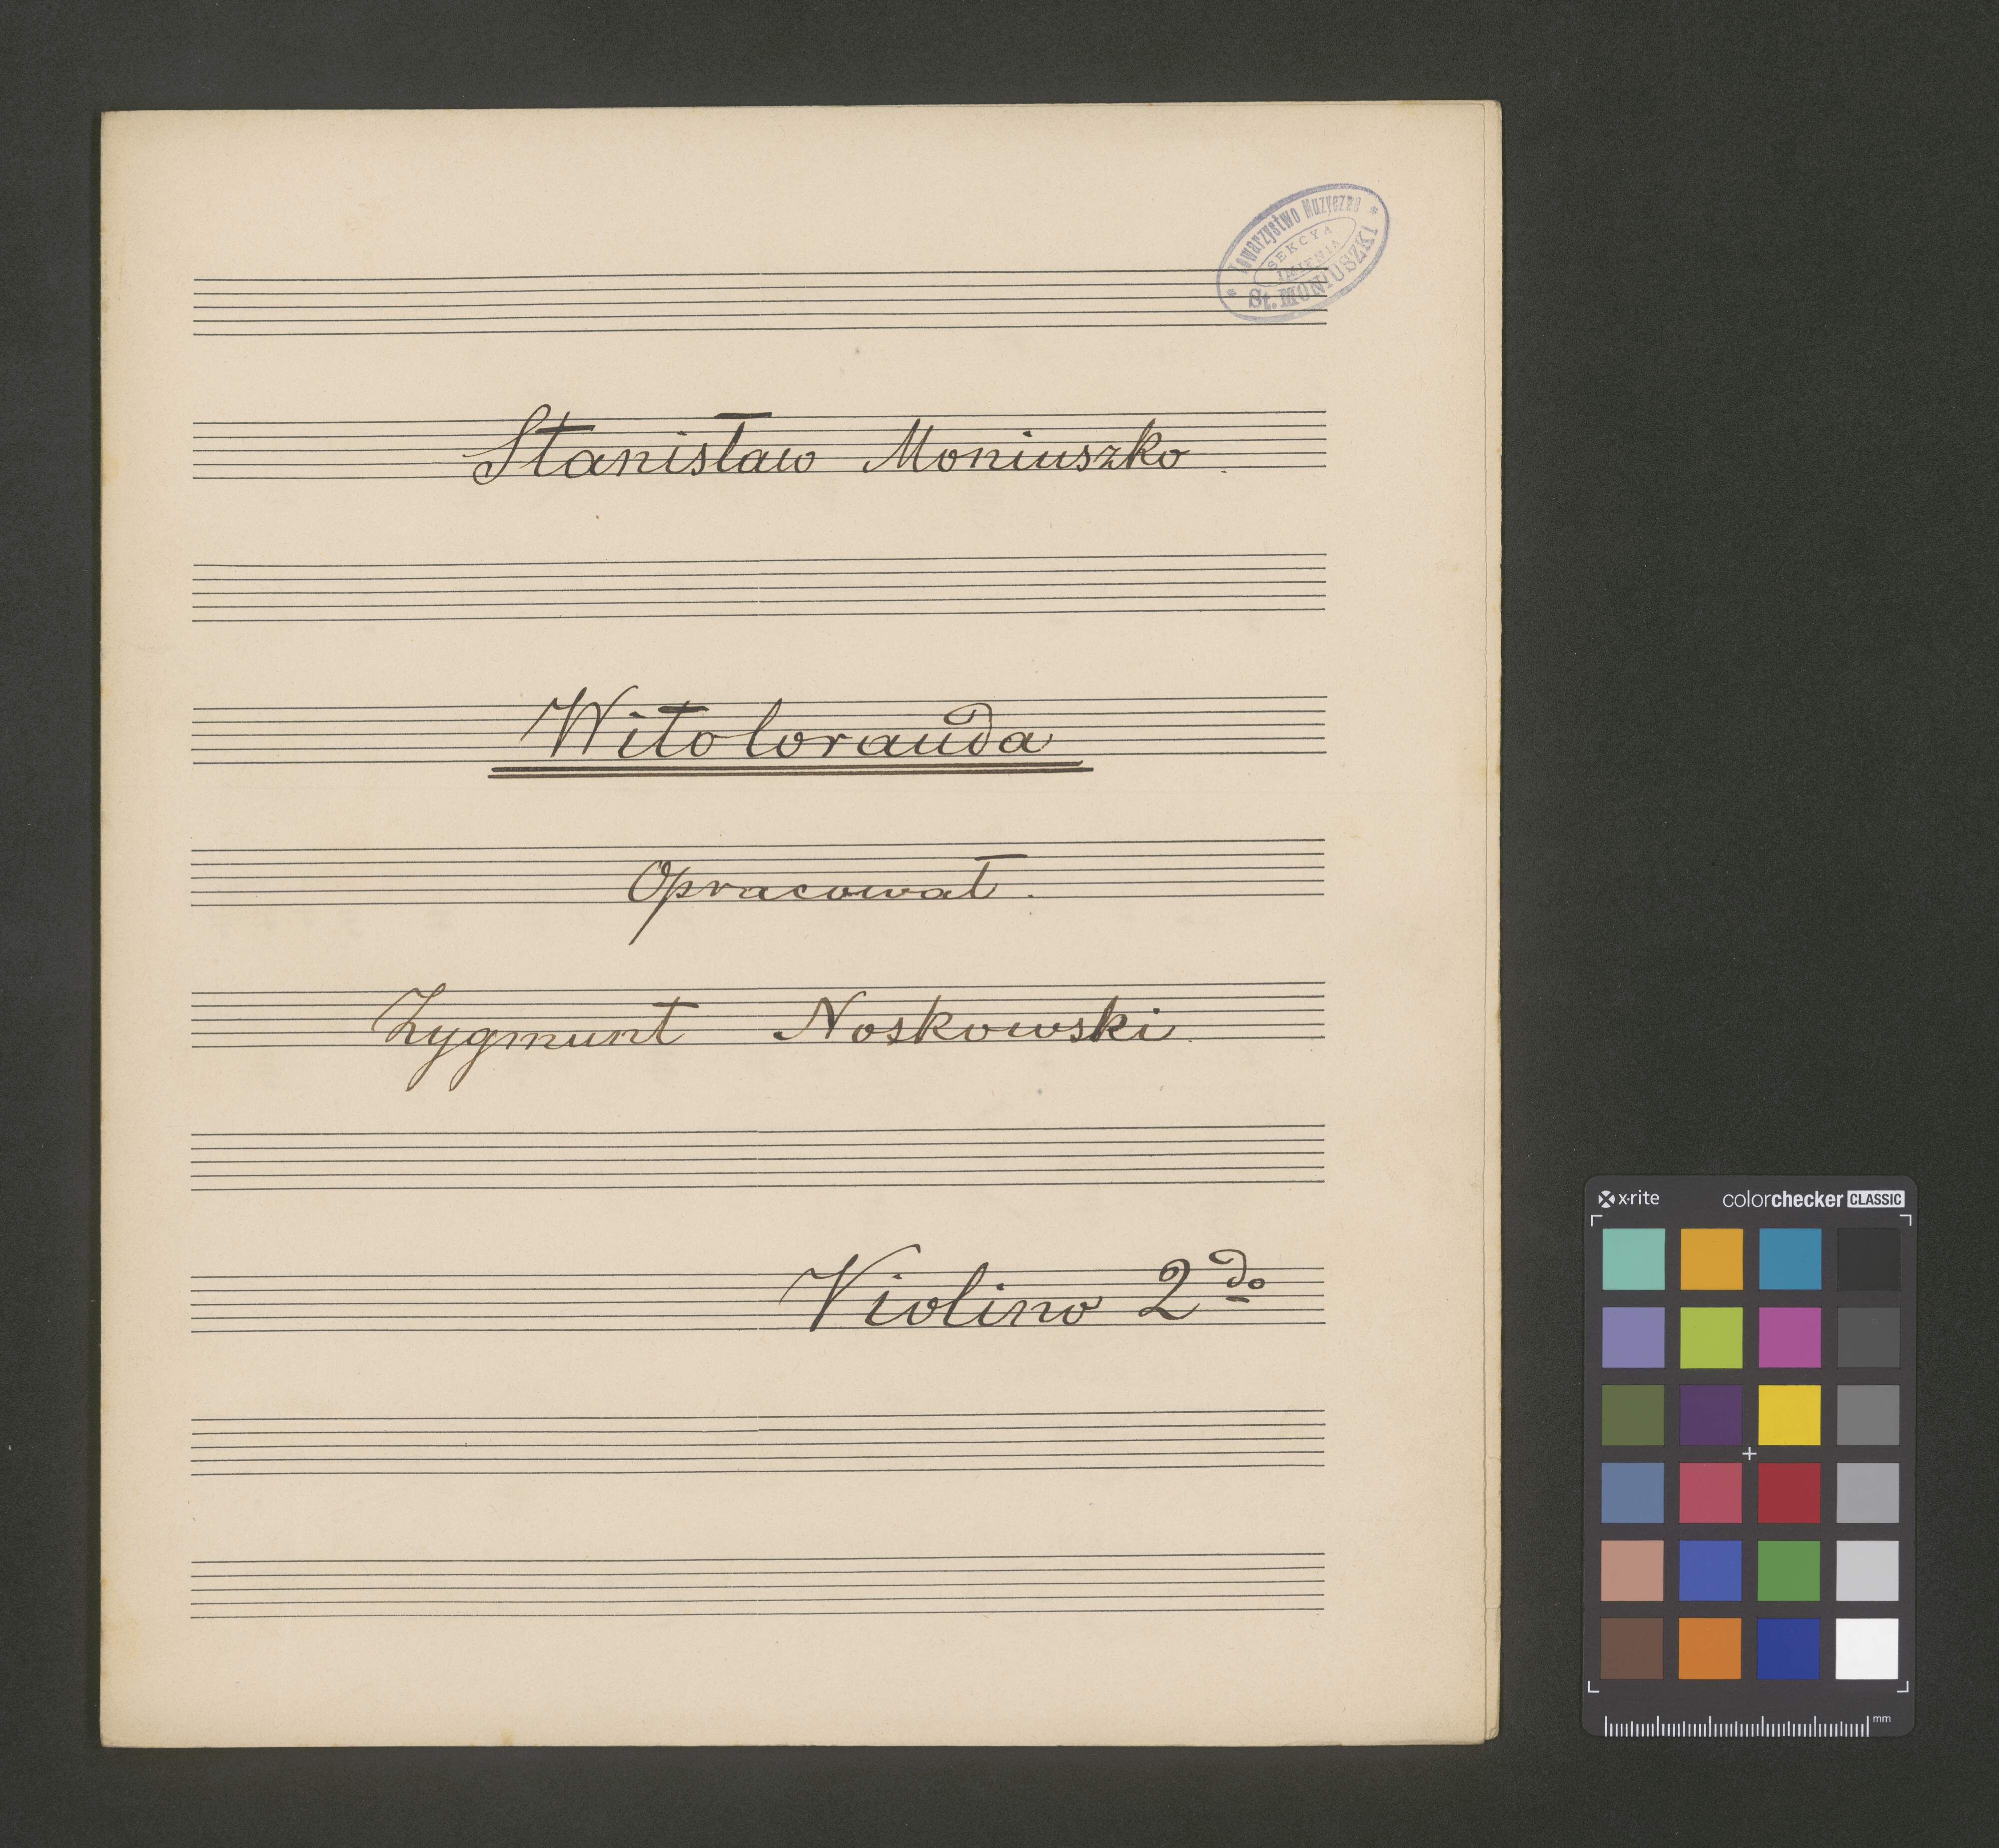 Towarzystwo Muzyczne
SEKCYA
IMIENIA
St. MONIUSZKI
Stanisław Moniuszko.
Witolorauda
Opracował.
Zygmunt Noskowski.
Violino 2do
x·rite colorchecker CLASSIC
mm